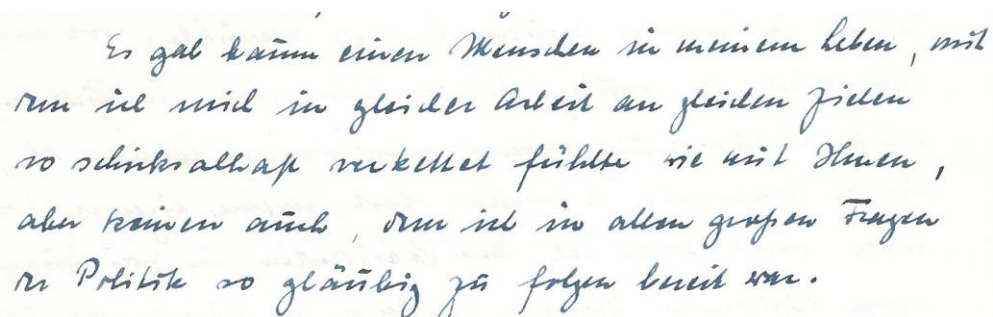 Es gab kaum einen Menschen in meinem Leben, mit
dem ich mich in gleicher Arbeit an gleichen Zielen
so schicksalhaft verkettet fühlte wie mit Ihnen,
aber keinen auch, dem ich in allen großen Fragen
der Politik so gläubig zu folgen bereit war.